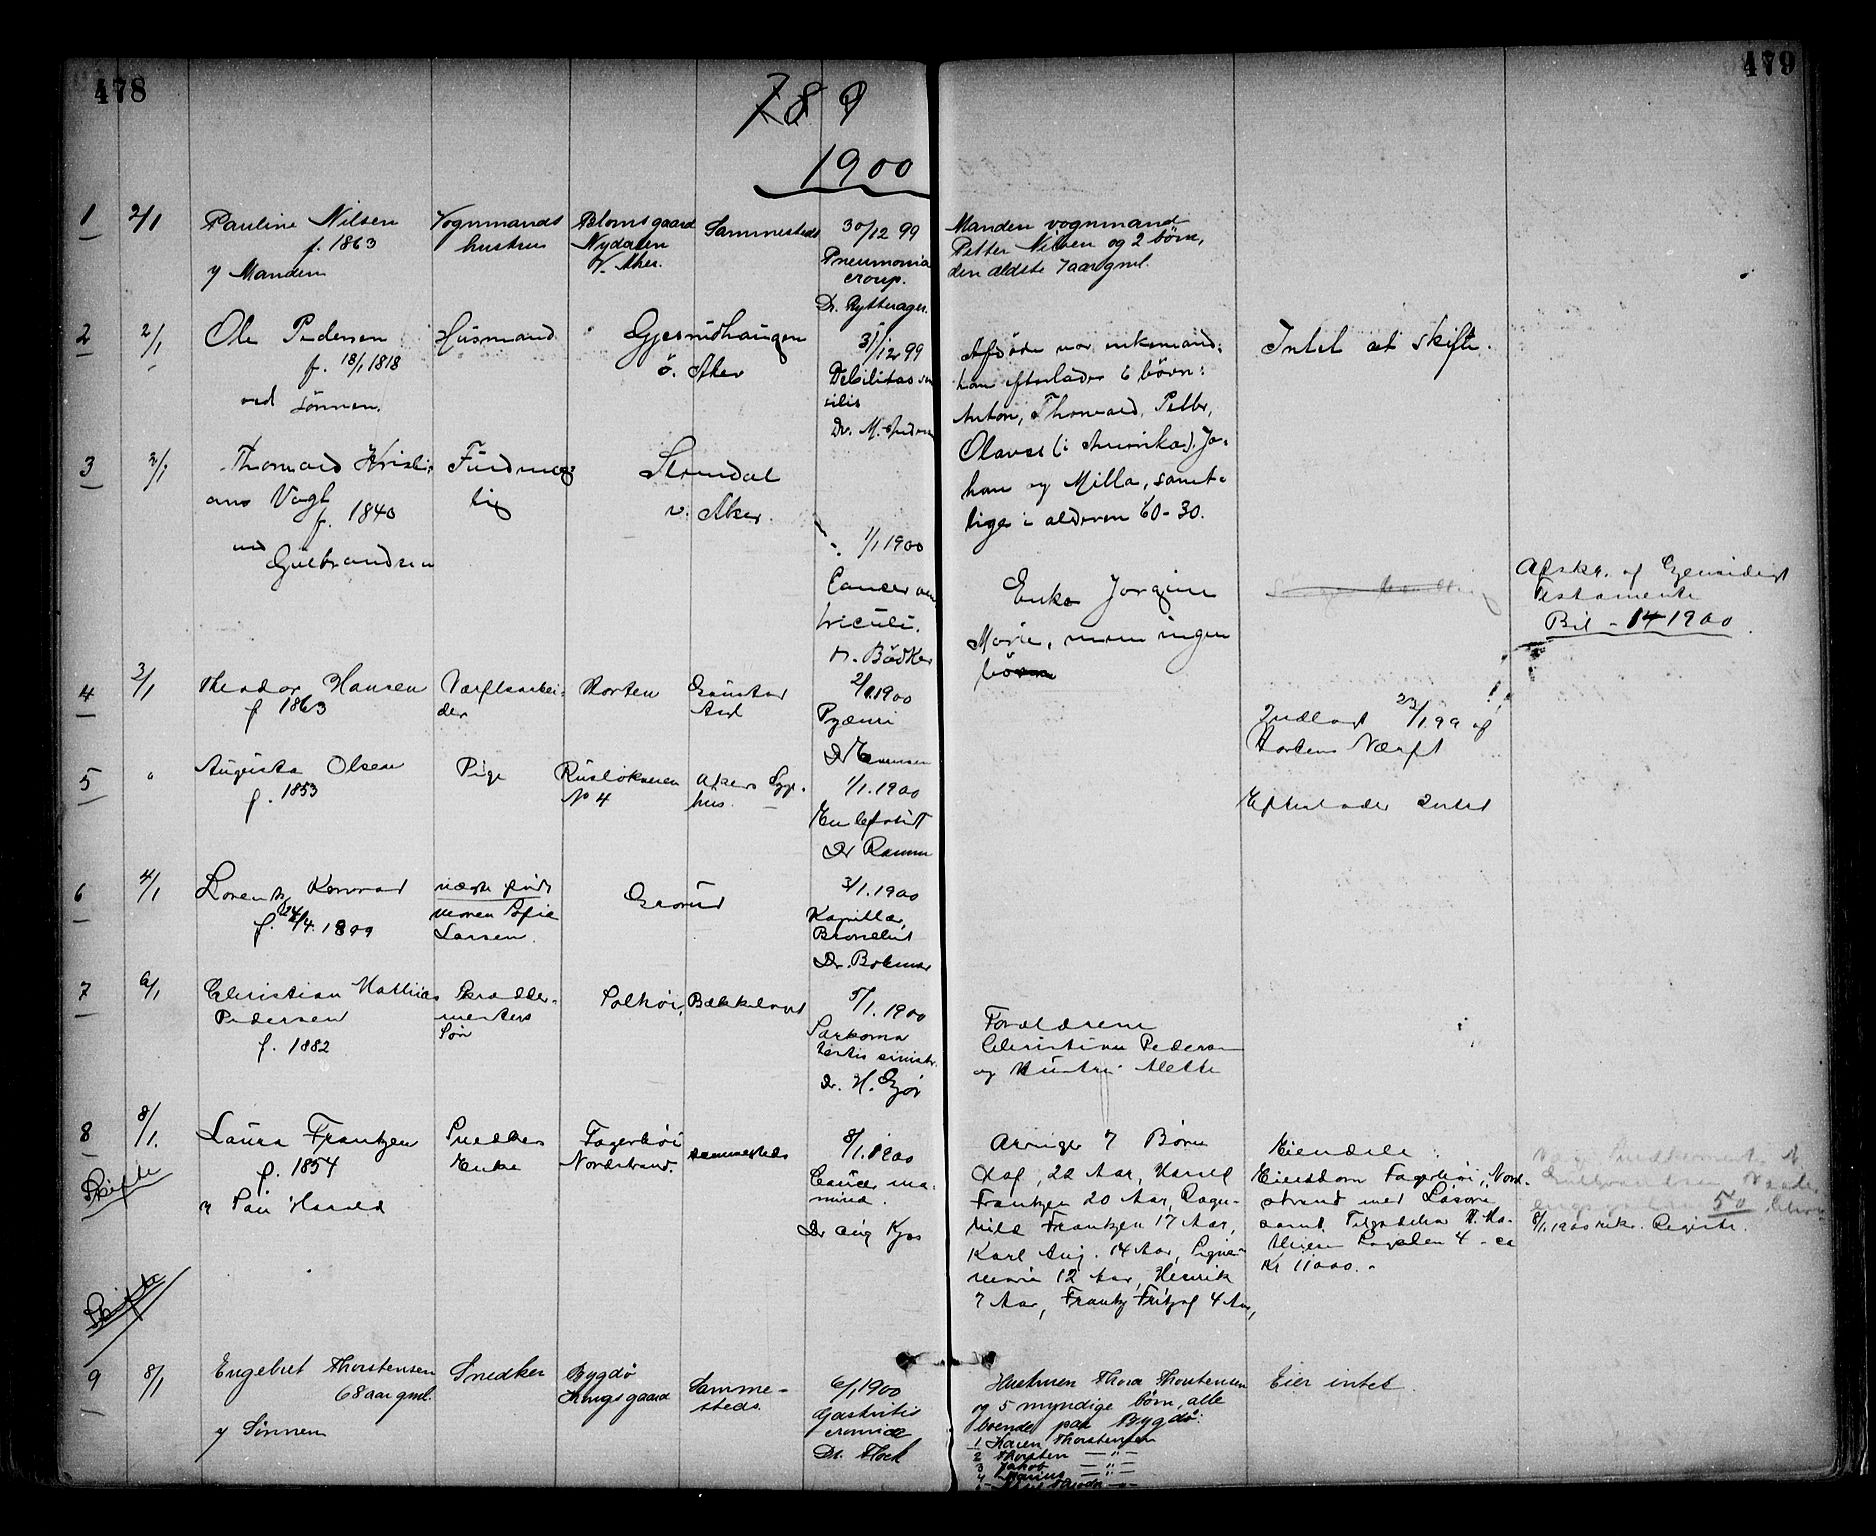 478
479
789
1900
1 2/1 Pauline Nilsen
f. 1863
v Manden
Vognmands
hustru
Blomsgaard
Nydalen
V. Aker.
Sammesteds
30/12 99
Pneumonia
croup.
Dr. Rytterager.
Manden vognmand
Petter Nilsen og 2 børn,
den ældste 7 aar gml.
2 2/1 Ole Pedersen
f. 18/1 1818
ved Sønnen.
Husmand
Gjesrudhaugen
ö. Aker
31/12 99
Debilitas se
nilis
Dr. M.
Afdøde var enkemand;
han efterlader 6 børn:
Anton, Thorvald, Petter,
Olaves (i Amerika), Jo-
han og Milla, samt-
lige i alderen 60-30.
Intet at skifte.
3 2/1 Thorvald Kristi-
ans Vogt
f. 1840
ved
Gulbrandsen
v. Aker.
1/1 1900
Cancer ven
triculi.
Dr. Bödker
Enke Jorgine
Marie, men ingen
børn
Afskr. af Gjensidigt
Testamente
Bil - 14 1900.
4 3/1 Theodor Hansen
f 1863
Værftsarbei-
der
Horten
Gaustad
Asyl
2/1.1900
Pyæmi
Dr
Indlagt 23/1.99 af
Hortens Værft
5 " Augusta Olsen
f. 1853
Pige
Rusløkveien
No 4
Akers Syge-
hus.
1/1.1900
Dr Ramm
Efterlader Intet
6 4/1 Lorentz Konrad
f. 24/4.1899
næste født
moren Sofie
Larsen.
Grorud
3/1.1900
Kapillær
Bronchit
Dr.
7 6/1 Christian Mathias
Pedersen
f. 1882
Skrædder-
mesters
Søn
Solhøi, Bækkelaget
5/1.1900
Sarkoma
testis sinistr.
Dr. H. Gjør
Forældrene
Christian Pedersen
og Hustru Alette
8 8/1. Laura Frantzen
f. 1854
v Søn Harald
Skifte
Snedker
Enke
Fagerhøi
Nordstrand.
sammesteds
8/1.1900
Cancer ma-
mma.
Dr Aug Kjos
Arvinger 7 Børn
Olaf, 22 Aar, Harald
Frantzen 20 Aar, Ragn-
hild Frantzen 17 Aar,
Karl Aug. 14 Aar, Signe
Marie 12 Aar, Henrik
7 Aar, Frantz Fritjof 4 Aar,
Eiendele:
Eiendom Fagerhøi, Nord-
strand med Løsøre
samt
4 - ca
Kr 11000.-
50
8/1 1900 Registr.
Skifte
9 8/1 Engebret Thorstensen
68 aar gml.
v Sønnen
Snedker
Bygdø
Kongsgaard
Samme-
steds.
6/1 1900
Gastritis
cronica
Dr. Floch
Hustruen Thora Thorstensen
og 5 myndige børn, alle
boende paa Bygdø:
1 Karen Thorstensen
2 Thorsten — " —
3 Jakob — " —
4 Marius — " —
Eier intet.